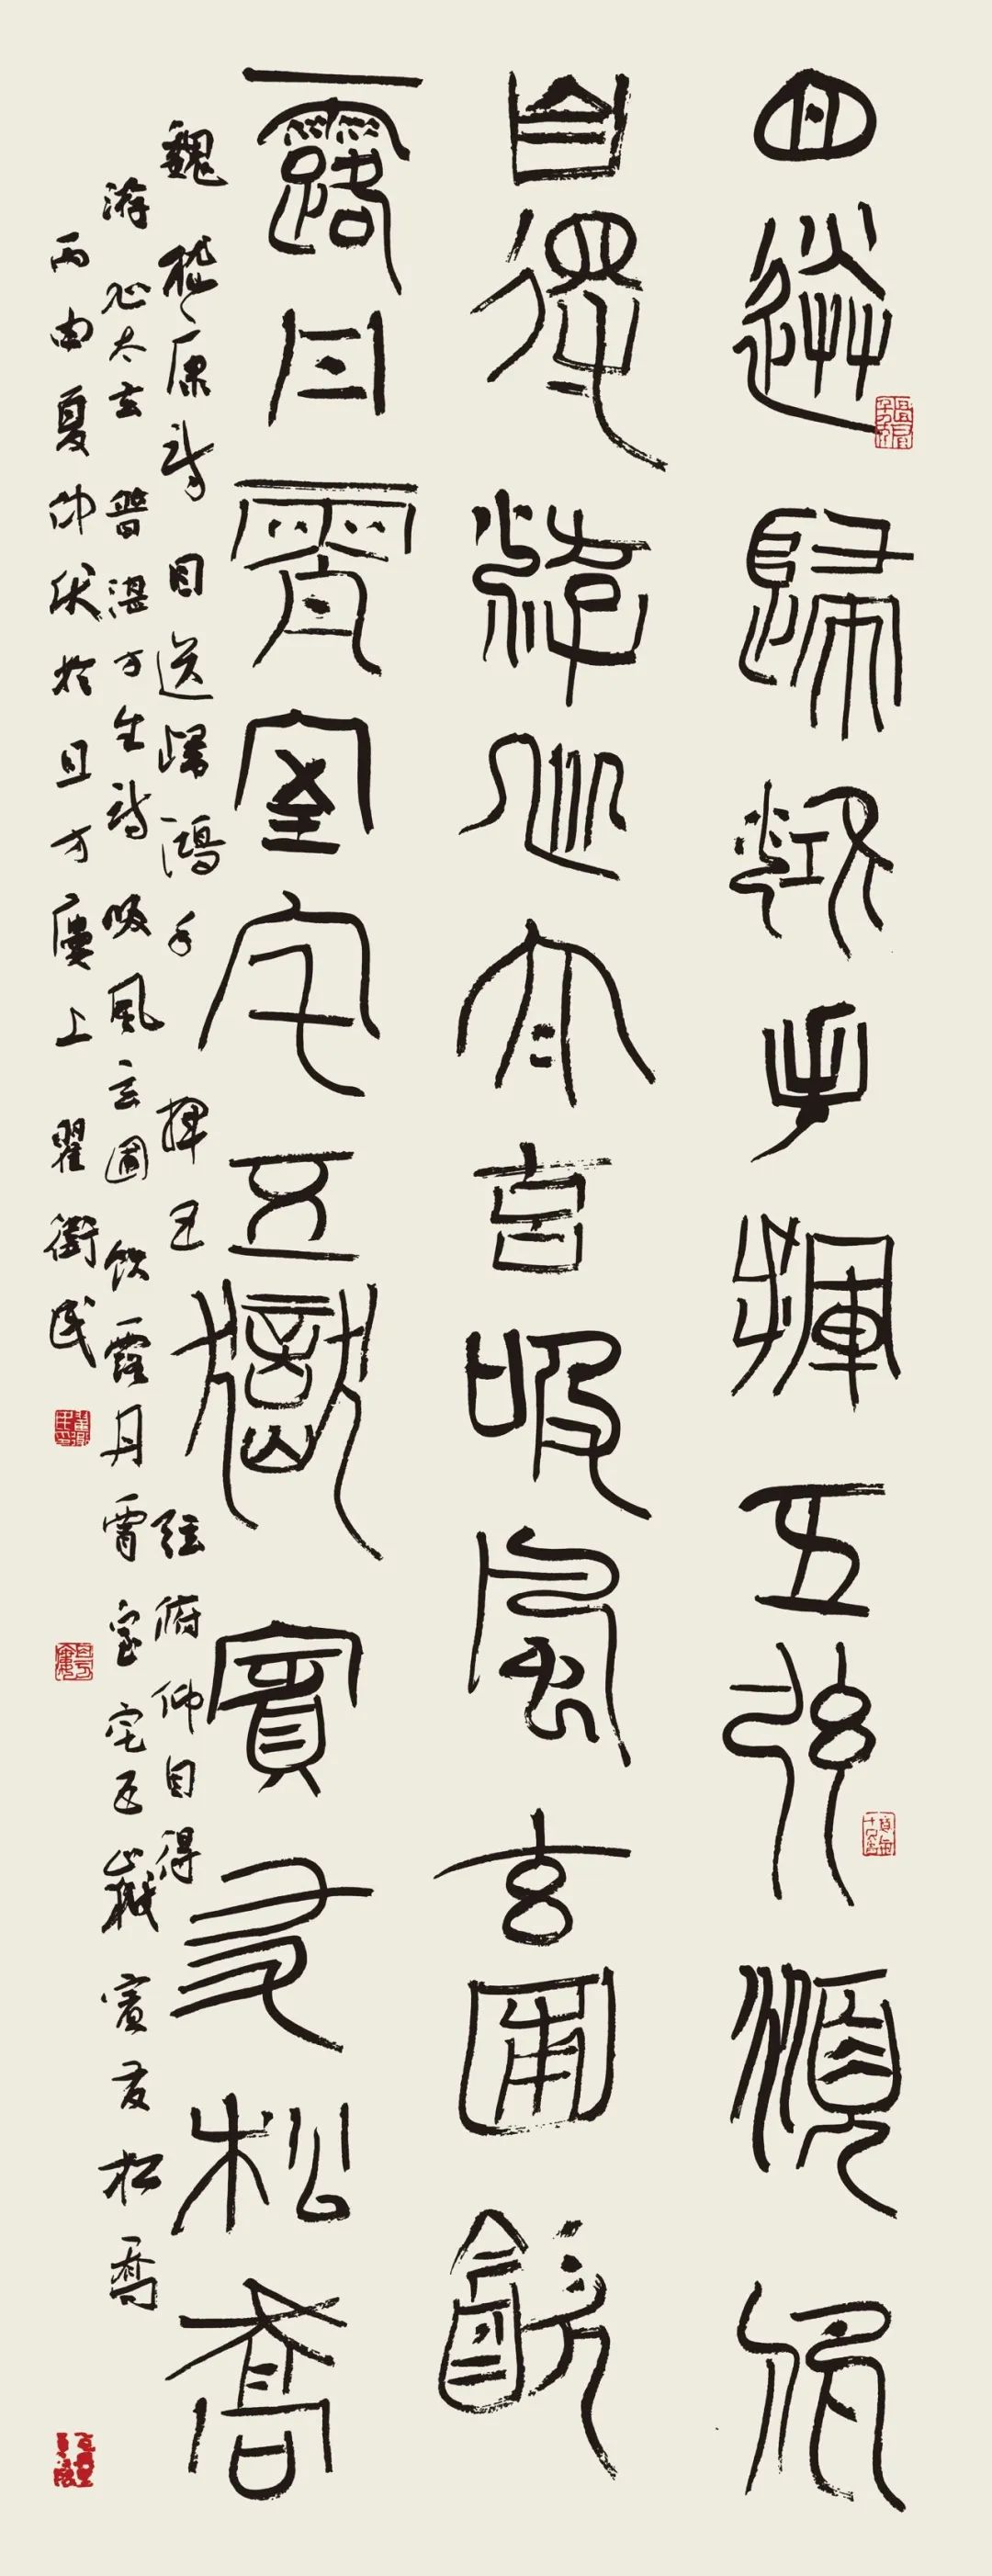 目送歸鴻手揮五弦頫仰
自得游心太玄吸風玄圃飲
露丹霄室宅五嶽賓友松喬
魏嵇康詩目送歸鴻手揮五弦俯仰自得
游心太玄晉湛方生詩吸風玄圃飲露丹霄室宅五嶽賓友松喬
丙申夏仲伏於且方廔上翟衛民